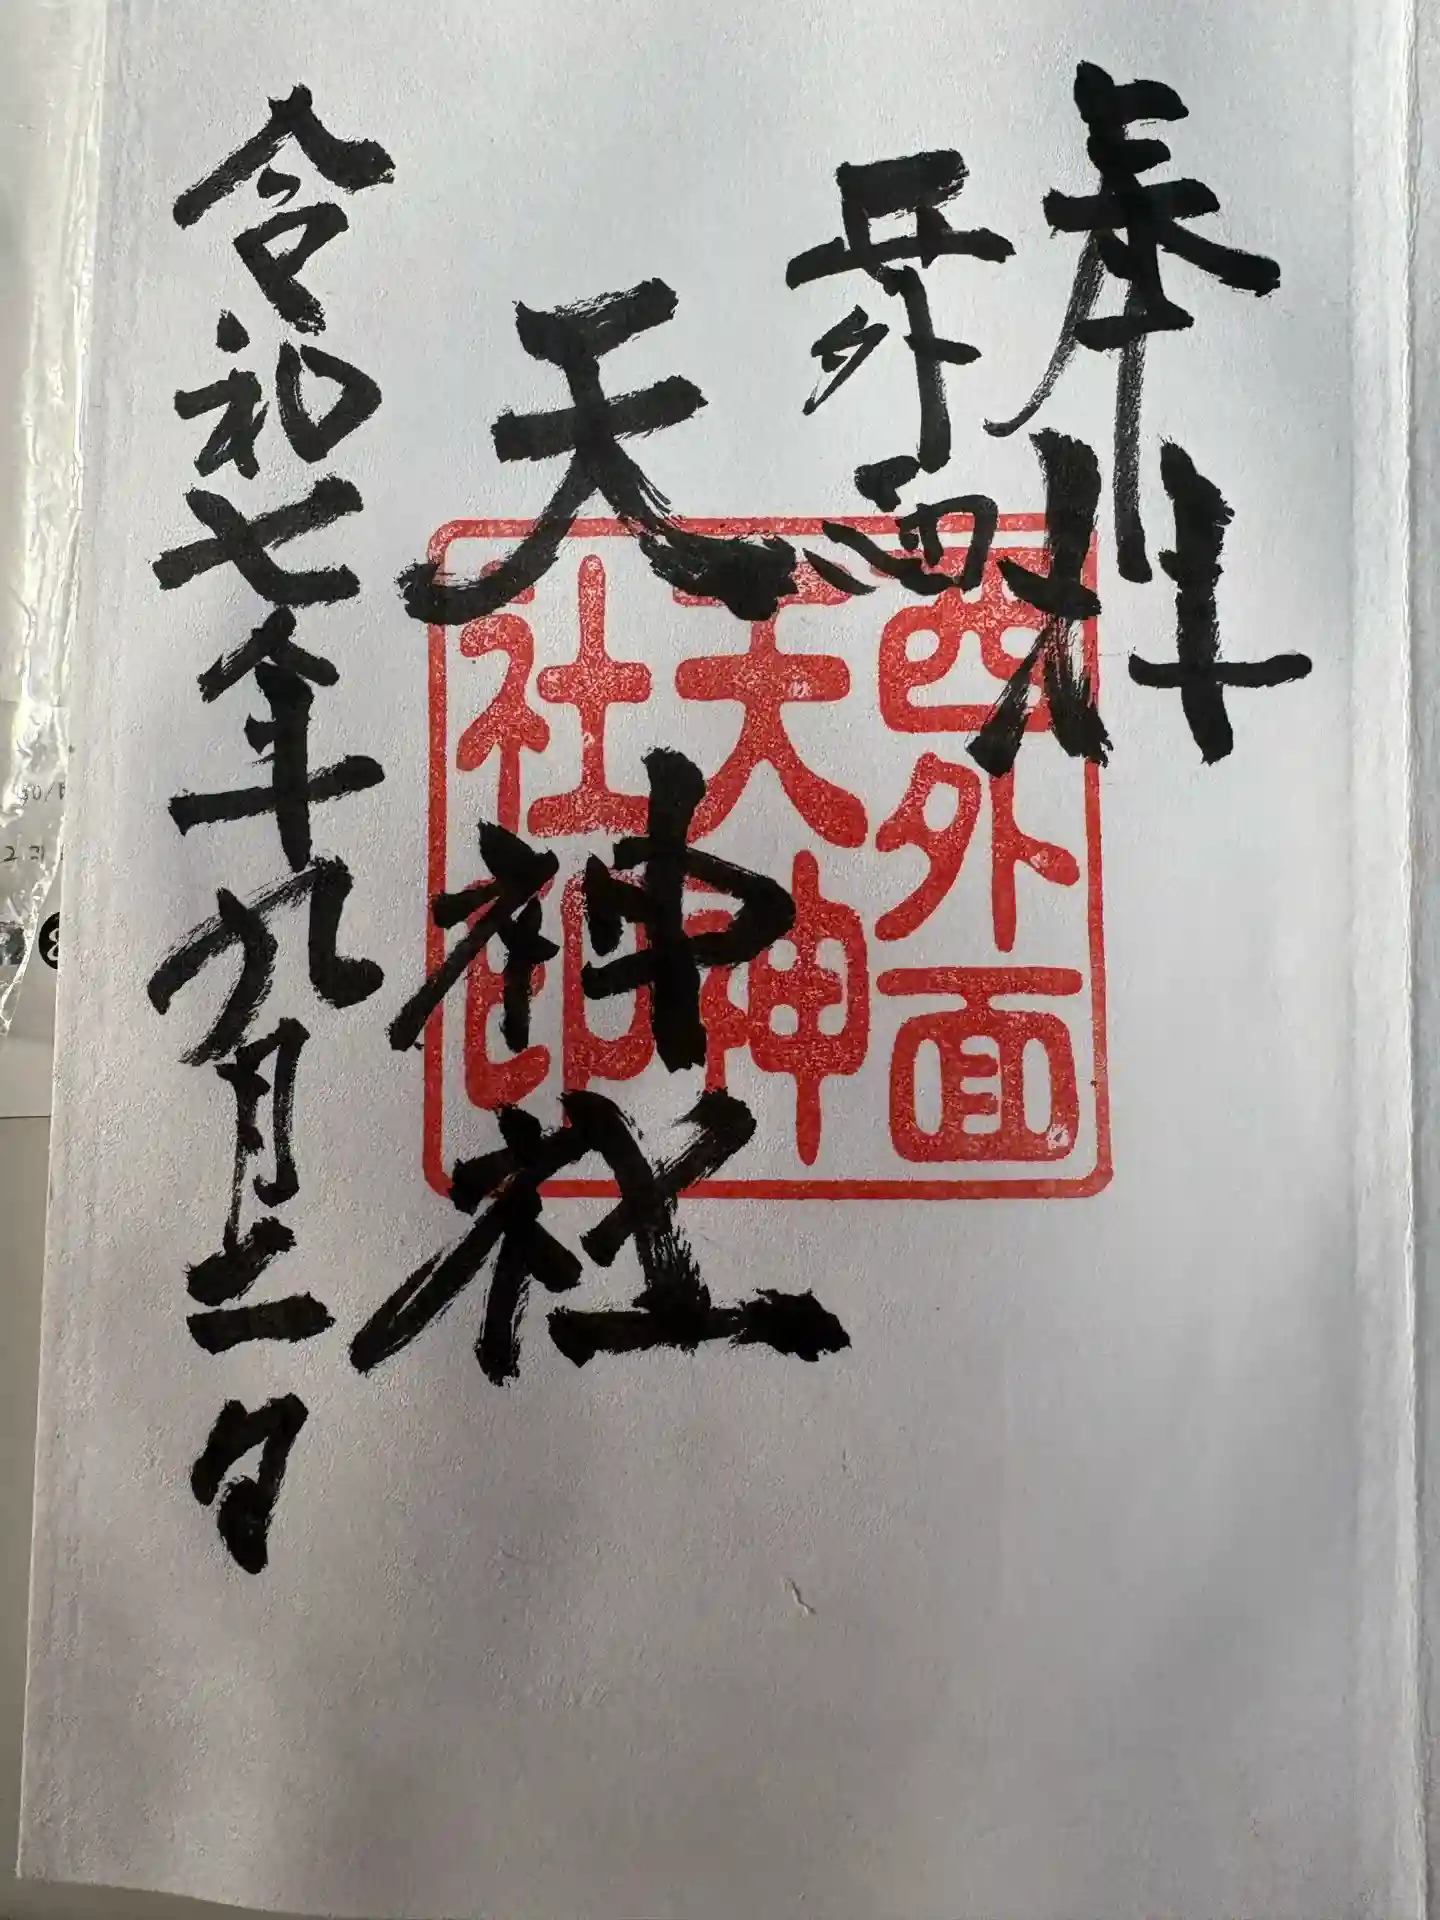 奉拝
西外面
天神社
令和七年九月日
西外面
天神
社印